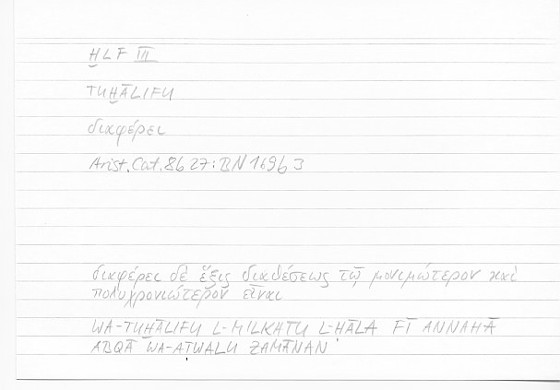 ḪLF III
TUḪĀLIFU
διαφέρει
Arist. Cat. 8b27: BN 169b3
διαφέρει δὲ ἕξις διαθέσεως τῷ μονιμώτερον καὶ
πολυχρονιώτερον εἶναι
WA-TUḪĀLIFU L-MILKATU L-ḤĀLA FĪ ANNAHĀ
ABQĀ WA-AṬWALU ZAMĀNAN